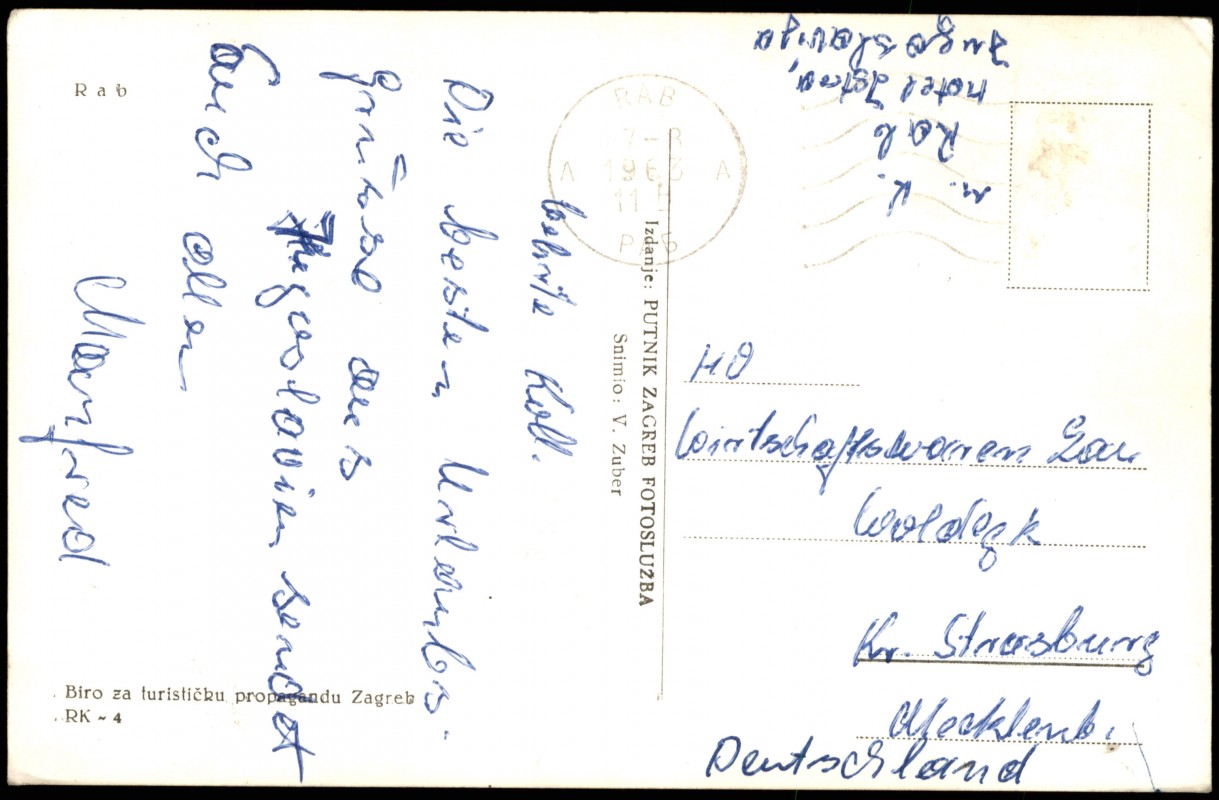 Rab
RAB
7-8
A 1963 A
11 5
РАБ
M. K.
Rab
hotel Istra,
Jugoslavija
Izdanje: PUTNIK ZAGREB FOTOSLUŽBA
Snimio: V. Zuber
Koll.
Die besten Urlaubs-
grüsse aus
Jugoslavien sendet
Euch allen
Manfred
HO
Wirtschaftswaren
Woldegk
Kr. Strasburg
Mecklenb.
Deutschland
Biro za turističku propagandu Zagreb
RK - 4